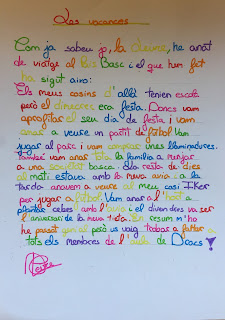 Les vacances
Com ja sabeu jo, la divisa, he anat
de viatge al País Basc i el que hem fet
ha sigut això:
Els meus cosins d'allà tenien escola
però el dimecres era festa. Doncs vam
aprofitar el seu dia de festa i vam
anar a veure un partit de futbol. Vam
jugar al parc i vam comprar unes lluminadores.
També vam anar tota la família a menjar
a una basca. Els restos de dies
al matí estava amb la meva avia i a la
tarda anavem a veure al meu cosí Iker
per jugar a futbol. Vam anar a l'hort a
plantar cebes amb l'avi i el divendres va ser
l'aniversari de la meva tida. En resum m'ho
he passat un al però us vaig trobar a faltar a
tots els membres de l'aula de Dracs!